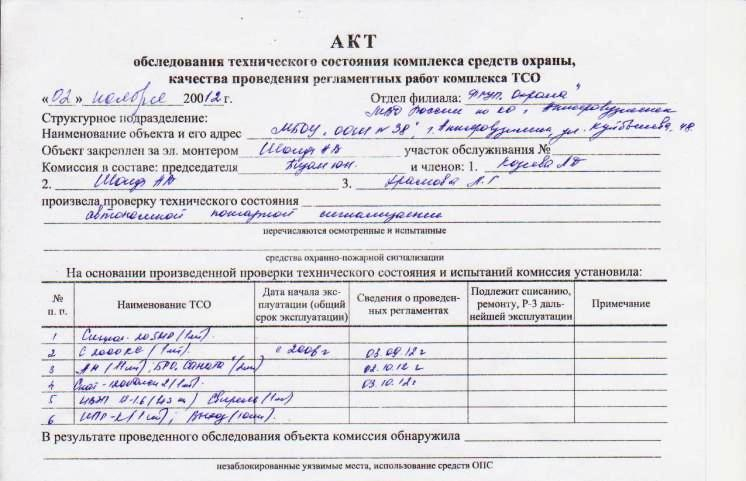 АКТ
обследования технического состояния комплекса средств охраны,
качества проведения регламентных работ комплекса ТСО
«02» ноября 20012 г. Отдел филиала: ФГУП „Охрана"
Структурное подразделение: МВД России по КО г. Анжеро
Наименование объекта и его адрес МБОУ „ООШ № 38", г. Анжеро ул. Куйбышева, 48
Объект закреплен за эл. монтером участок обслуживания №
Комиссия в составе: председателя и членов: 1.
2. 3.
произвела проверку технического состояния
автономной пожарной сигнализации
перечисляются осмотренные и испытанные
средства охранно-пожарной сигнализации
На основании произведенной проверки технического состояния и испытаний комиссия установила:
№ п. п. Наименование ТСО Дата начала экс-плуатации (общий срок эксплуатации) Сведения о проведен-ных регламентах Подлежит списанию, ремонту, Р-3 даль-нейшей эксплуатации Примечание
1 Сигнал-20 (1шт).
2 С 2000 (1шт). с 2008 г 03.09.12 г
3 (2шт) 02.10.12 г
4 (1шт). 03.10.12 г
5 Свирель (1шт)
6 ИПР (1шт), Выход (10шт).
В результате проведенного обследования объекта комиссия обнаружила
незаблокированные уязвимые места, использование средств ОПС